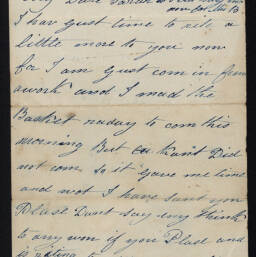 I hav gust time to rite a
little more to you now
for I am gust com in from
awork and I mad the
Basket naday to com this
morning But Did
not com So it gave me time
and not I have sent you
Plase Dont say eny think
to any won if you Plase and